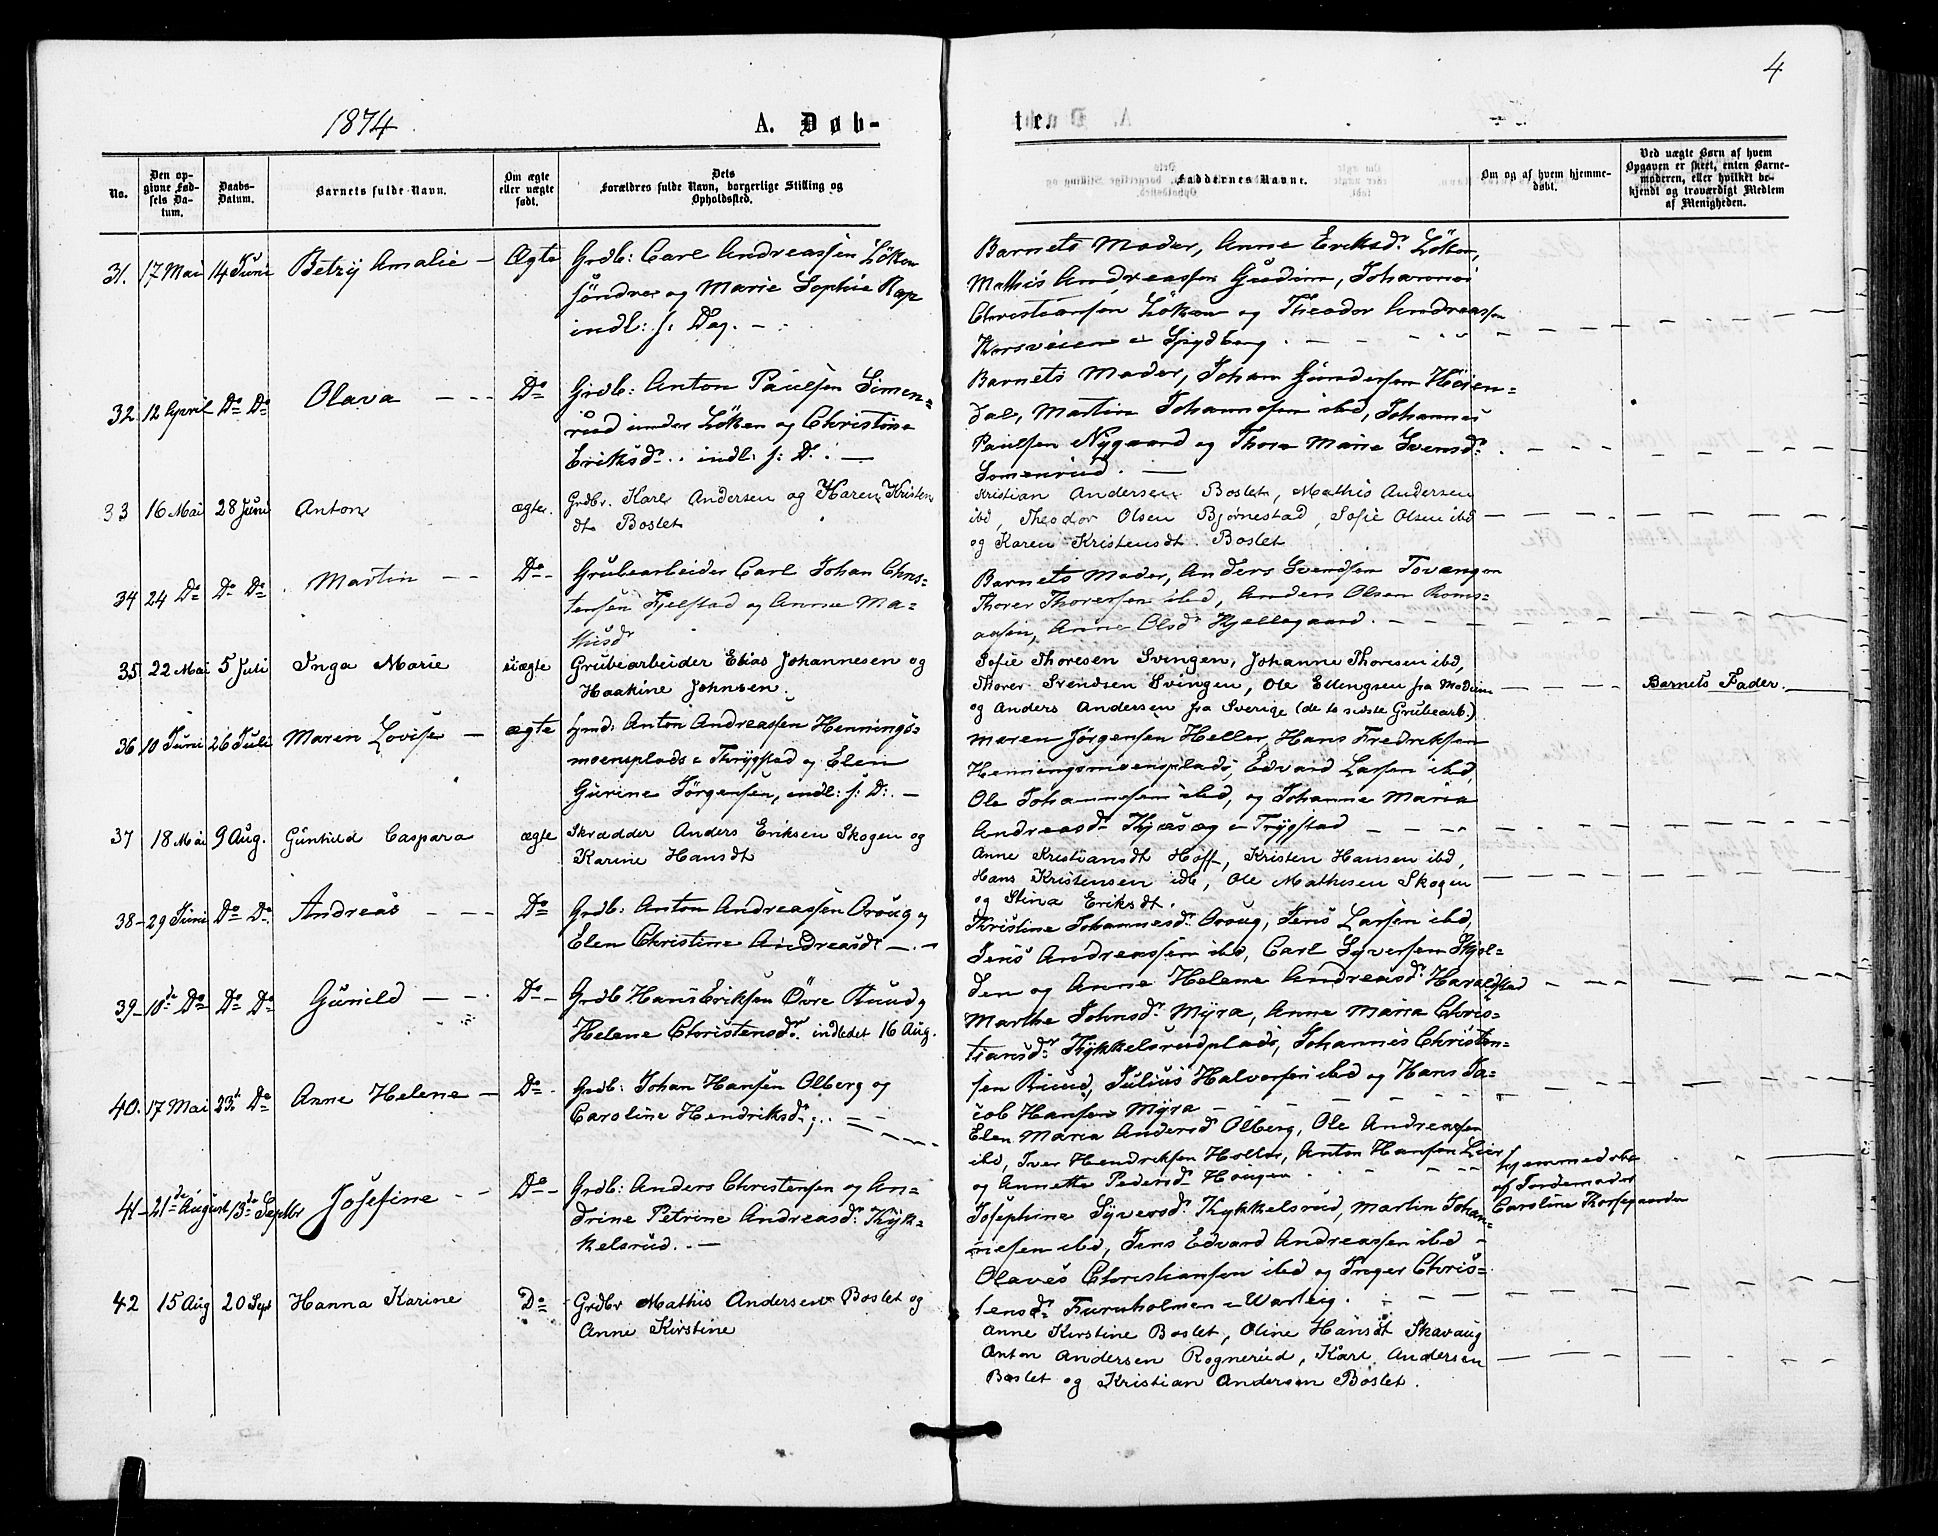 4
1874.
A. Døb-
te.
No.
Den op-
givne Fød-
sels Da-
tum.
Daabs-
Datum.
Barnets fulde Navn.
Om ægte
eller uægte
født.
Dets
Forældres fulde Navn, borgerlige Stilling og
Opholdssted.
Faddernes Navne.
Om og af hvem hjemme-
døbt.
Ved uægte Børn af hvem
Opgaven er skeet, enten Barne-
moderen, eller hvilket be-
kjendt og troværdigt Medlem
af Menigheden.
31. 17 Mai 14 Juni Betzy Amalie - Ægte Grdb: Carl Andreassen Löken
søndre og Marie Sophie Rap
indl: s: Dag. -
Barnets Moder, Anne Eriksdr. Löken,
Mathis Andreassen Gudim, Johannes
Christiansen Löken og Theodor Andreassen
Korsveien i Spydberg.
32. 12 April Do Do Olava - - - Do Grdb: Anton Paulsen Simen-
rud under Löken og Christine
Eriksdr. indl: s: D. -
Barnets Moder, Johan Gundersen Höien-
dal, Martin Johannesen ibd, Johannes
Paulsen Nygaard og Thora Marie Svensdr.
Simenrud. -
33 16 Mai 28 Juni Anton ægte. Grdbr. Karl Andersen og Karen Kristen
dt Boslet
Kristian Andersen Boslet, Mathis Andersen
ibd, Theodor Olsen Bjørnestad, Sofie Olsen ibd
og Karen Kristensdt. Boslet
34 24 Do Do Do Martin - - Do - Grubearbeider Carl Johan Chris-
tensen Fjelstad og Anne Ma-
thisdr
Barnets Moder, Anders Svendsen Tovengen
Thorer Thoresen ibd, Anders Olsen Roms-
aasen, Anne Olsdr. Kjellegaard.
35 22 Mai 5 Juli Inga Marie uægte Grubearbeider Elias Johannesen og
Haakine Johnsen.
Sofie Thoresen Svingen, Johanne Thoresen ibd,
Thorer Svendsen Svingen, Ole Ellengsen fra Modum
og Anders Andersen fra Sverige (de to sidste Grubearb.)
Barnets Fader.
36 10 Juni 26 Juli Maren Lovise - ægte Anton Andreassen Hennings-
moenplads i Thrygstad og Elen
Gurine Jørgensen, indl: s: D. -
Maren Jørgensen Heller, Hans Fredriksen
Henningsmoenplads, Edvard Larsen ibd,
Ole Johannesen ibd, og Johanne Maria
Andreasdr. i Trygstad
37 18 Mai 9 Aug. Gunhild Caspara ægte Skrædder Anders Eriksen Skogen og
Karine Hansdt
Anne Kristiansdt Hoff, Kristen Hansen ibd,
Hans Kristensen idb, Ole Mathisen Skogen
og Stina Eriksdt.
38 - 29 Juni Do Do. Andreas - - - Do Grdb: Anton Andreassen Oroug og
Elen Christine Andreasdr. -
Kristine Johannesdr. Oroug, Jens Larsen ibd,
Jens Andreassen ibd, Carl Syversen Skjol-
den og Anne Helene Andreasdr. Haraldstad
39 - 10de Do Do Do Gunild - - Do - Grdb Hans Eriksen Øvre Ruud og
Helene Christensdr. indledet 16 Aug.
Marthe Johnsdr. Myra, Anne Maria Chris-
tiansdr. Kykkelsrudplads, Johannes Christen-
sen Ruud, Julius Halvorsen ibd og Hans Ja-
cob Hansen Myra
40. 17 Mai 23de Do Anne Helene - Do - Grdb: Johan Hansen Olberg og
Caroline Hendriksdr;
Elen Maria Andersdr Olberg, Ole Andreassen
ibd, Iver Hendriksen Holter, Anton Hansen Lier
og Annette Pedersdr. Hougen
41 - 21de August 13de Septbr Josefine - - Do - Grdb: Anders Christensen og An-
drine Petrine Andreasdr. Kyk-
kelsrud. -
Josephine Syversdr. Kykkelsrud, Martin Johan-
nesen ibd, Jens Edvard Andreassen ibd -
Olaves Christiansen ibd og Inger Chris-
tensdr. Furuholmen i Warteig.
hjemmedøbt
af Jordemoder
Caroline Thorsegaarden
42 15 Aug 20 Sept Hanna Karine Do - Grdbr Mathis Andersen Boslet og
Anne Kirstine
Anne Kirstine Boslet, Oline Hansdt Skavaug
Anton Andersen Rognerud, Karl Andersen
Boslet og Kristian Andersen Boslet.